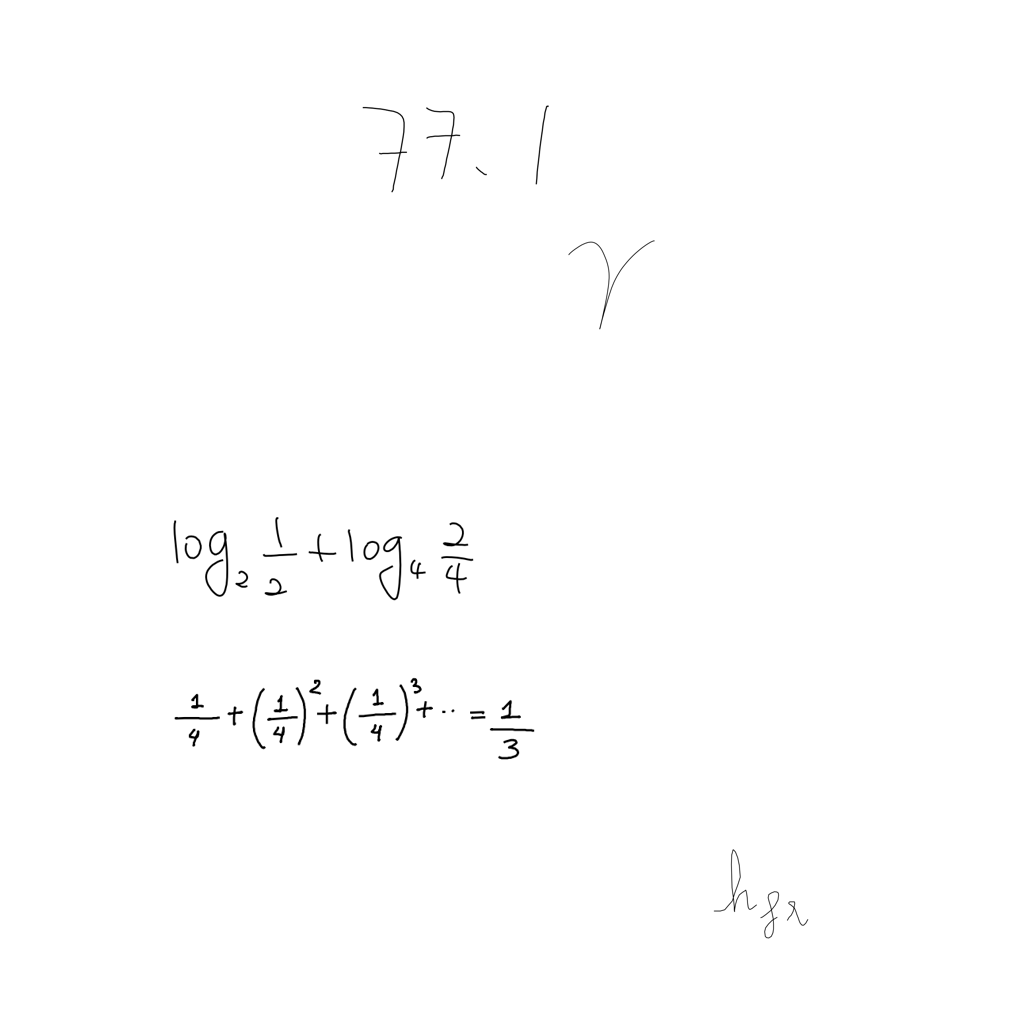 77.1
γ
log₂ 1/2 + log₄ 2/4
1/4 + (1/4)² + (1/4)³ + ·· = 1/3